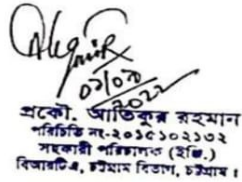 ০১/০৩
2022
প্রকৌ. আতিকুর রহমান
পরিচিতি নং-২০১৫১০২১৩২
সহকারী পরিচালক (ইঞ্জি.)
বিআরটিএ, চট্টগ্রাম বিভাগ, চট্টগ্রাম।